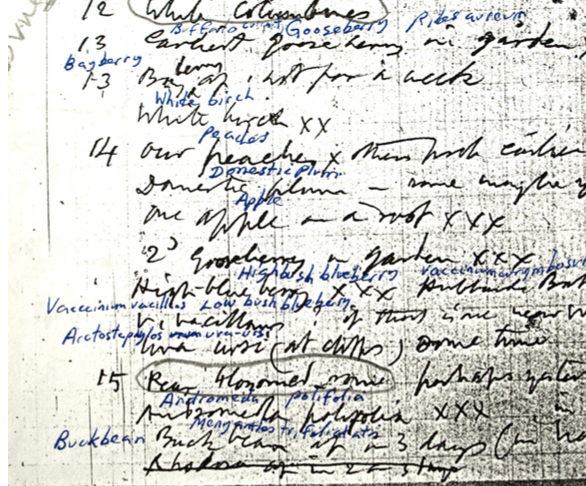 12 White Columbines
Buffalo currant Gooseberry Ribes aureum
13 Earliest gooseberry in garden
Bayberry
13 Bayberry not for a week
White birch
White birch XX
Peaches
14 Our peaches X others prob earlier
Domestic Plum
Domestic plum — some maybe
Apple
One apple on a roof XXX
"2" Gooseberry in garden XXX
Highbush blueberry Vaccinium corymbosum
High-blueberry XXX Hubbards
Vaccinium vacillans Low bush blueberry
V. vacillans if that is one near
Arctostaphylos uva-ursi
Uva ursi (at cliffs) some time
15 Pear bloomed some perhaps yester
Andromeda polifolia
Andromeda polifolia XXX in
Menyanthes trifoliata
Buckbean Buck bean up in 3 days (in